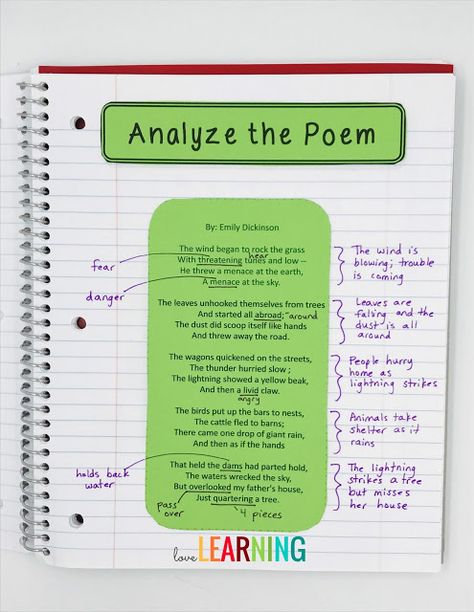 Analyze the Poem
By: Emily Dickinson
The wind began to rock the grass
hear
With threatening tunes and low --
He threw a menace at the earth,
A menace at the sky.
fear
danger
The wind is
blowing; trouble
is coming
The leaves unhooked themselves from trees
And started all abroad; around
The dust did scoop itself like hands
And threw away the road.
Leaves are
falling and the
dust is all
around
The wagons quickened on the streets,
The thunder hurried slow ;
The lightning showed a yellow beak,
And then a livid claw.
angry
People hurry
home as
lightning strikes
The birds put up the bars to nests,
The cattle fled to barns;
There came one drop of giant rain,
And then as if the hands
Animals take
shelter as it
rains
That held the dams had parted hold,
The waters wrecked the sky,
But overlooked my father's house,
Just quartering a tree.
holds back
water
pass
over
4 pieces
The lightning
strikes a tree
but misses
her house
love LEARNING